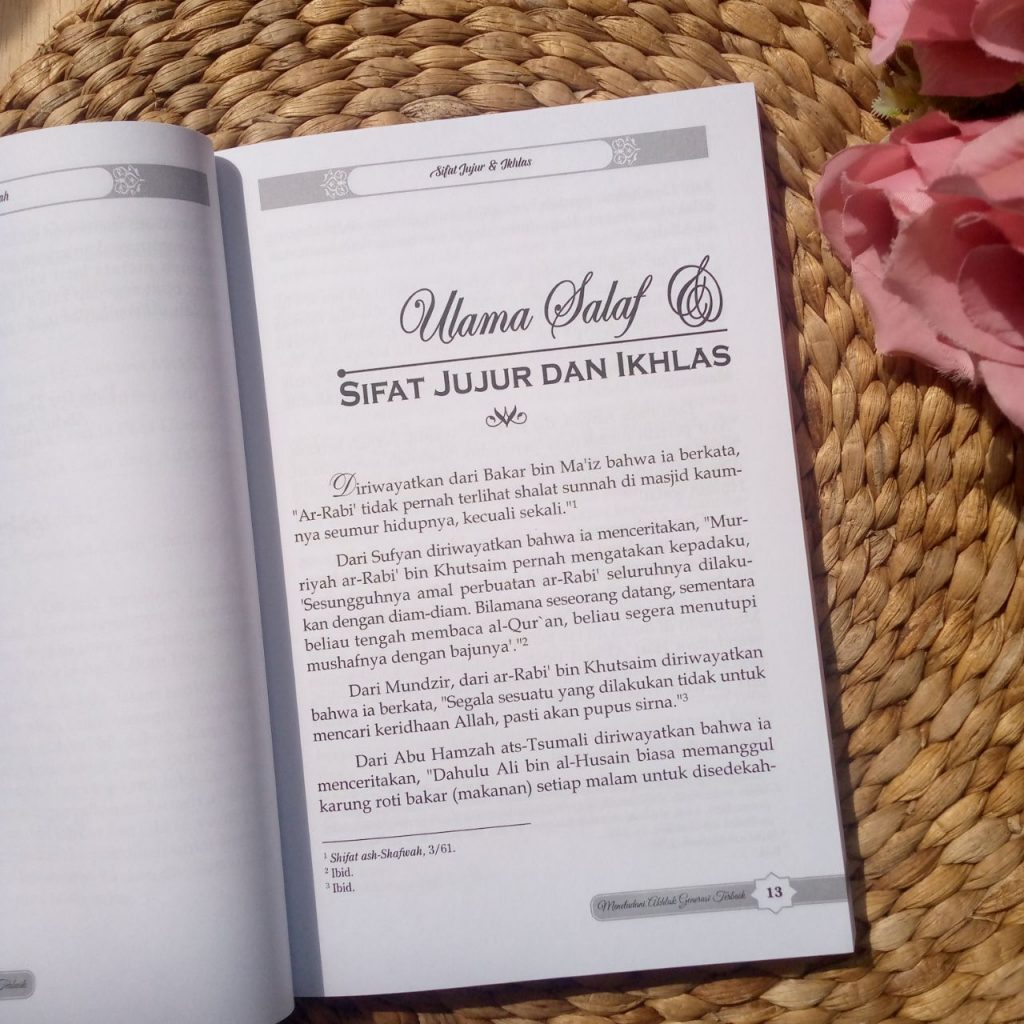 Sifat Jujur & Ikhlas
Ulama Salaf &
SIFAT JUJUR DAN IKHLAS
Diriwayatkan dari Bakar bin Ma'iz bahwa ia berkata,
"Ar-Rabi' tidak pernah terlihat shalat sunnah di masjid kaum-
nya seumur hidupnya, kecuali sekali."1
Dari Sufyan diriwayatkan bahwa ia menceritakan, "Mur-
riyah ar-Rabi' bin Khutsaim pernah mengatakan kepadaku,
'Sesungguhnya amal perbuatan ar-Rabi' seluruhnya dilaku-
kan dengan diam-diam. Bilamana seseorang datang, sementara
beliau tengah membaca al-Qur`an, beliau segera menutupi
mushafnya dengan bajunya'."2
Dari Mundzir, dari ar-Rabi' bin Khutsaim diriwayatkan
bahwa ia berkata, "Segala sesuatu yang dilakukan tidak untuk
mencari keridhaan Allah, pasti akan pupus sirna."3
Dari Abu Hamzah ats-Tsumali diriwayatkan bahwa ia
menceritakan, "Dahulu Ali bin al-Husain biasa memanggul
karung roti bakar (makanan) setiap malam untuk disedekah-
1 Shifat ash-Shafwah, 3/61.
2 Ibid.
3 Ibid.
Meneladani Akhlak Generasi Terbaik 13
Terbaik